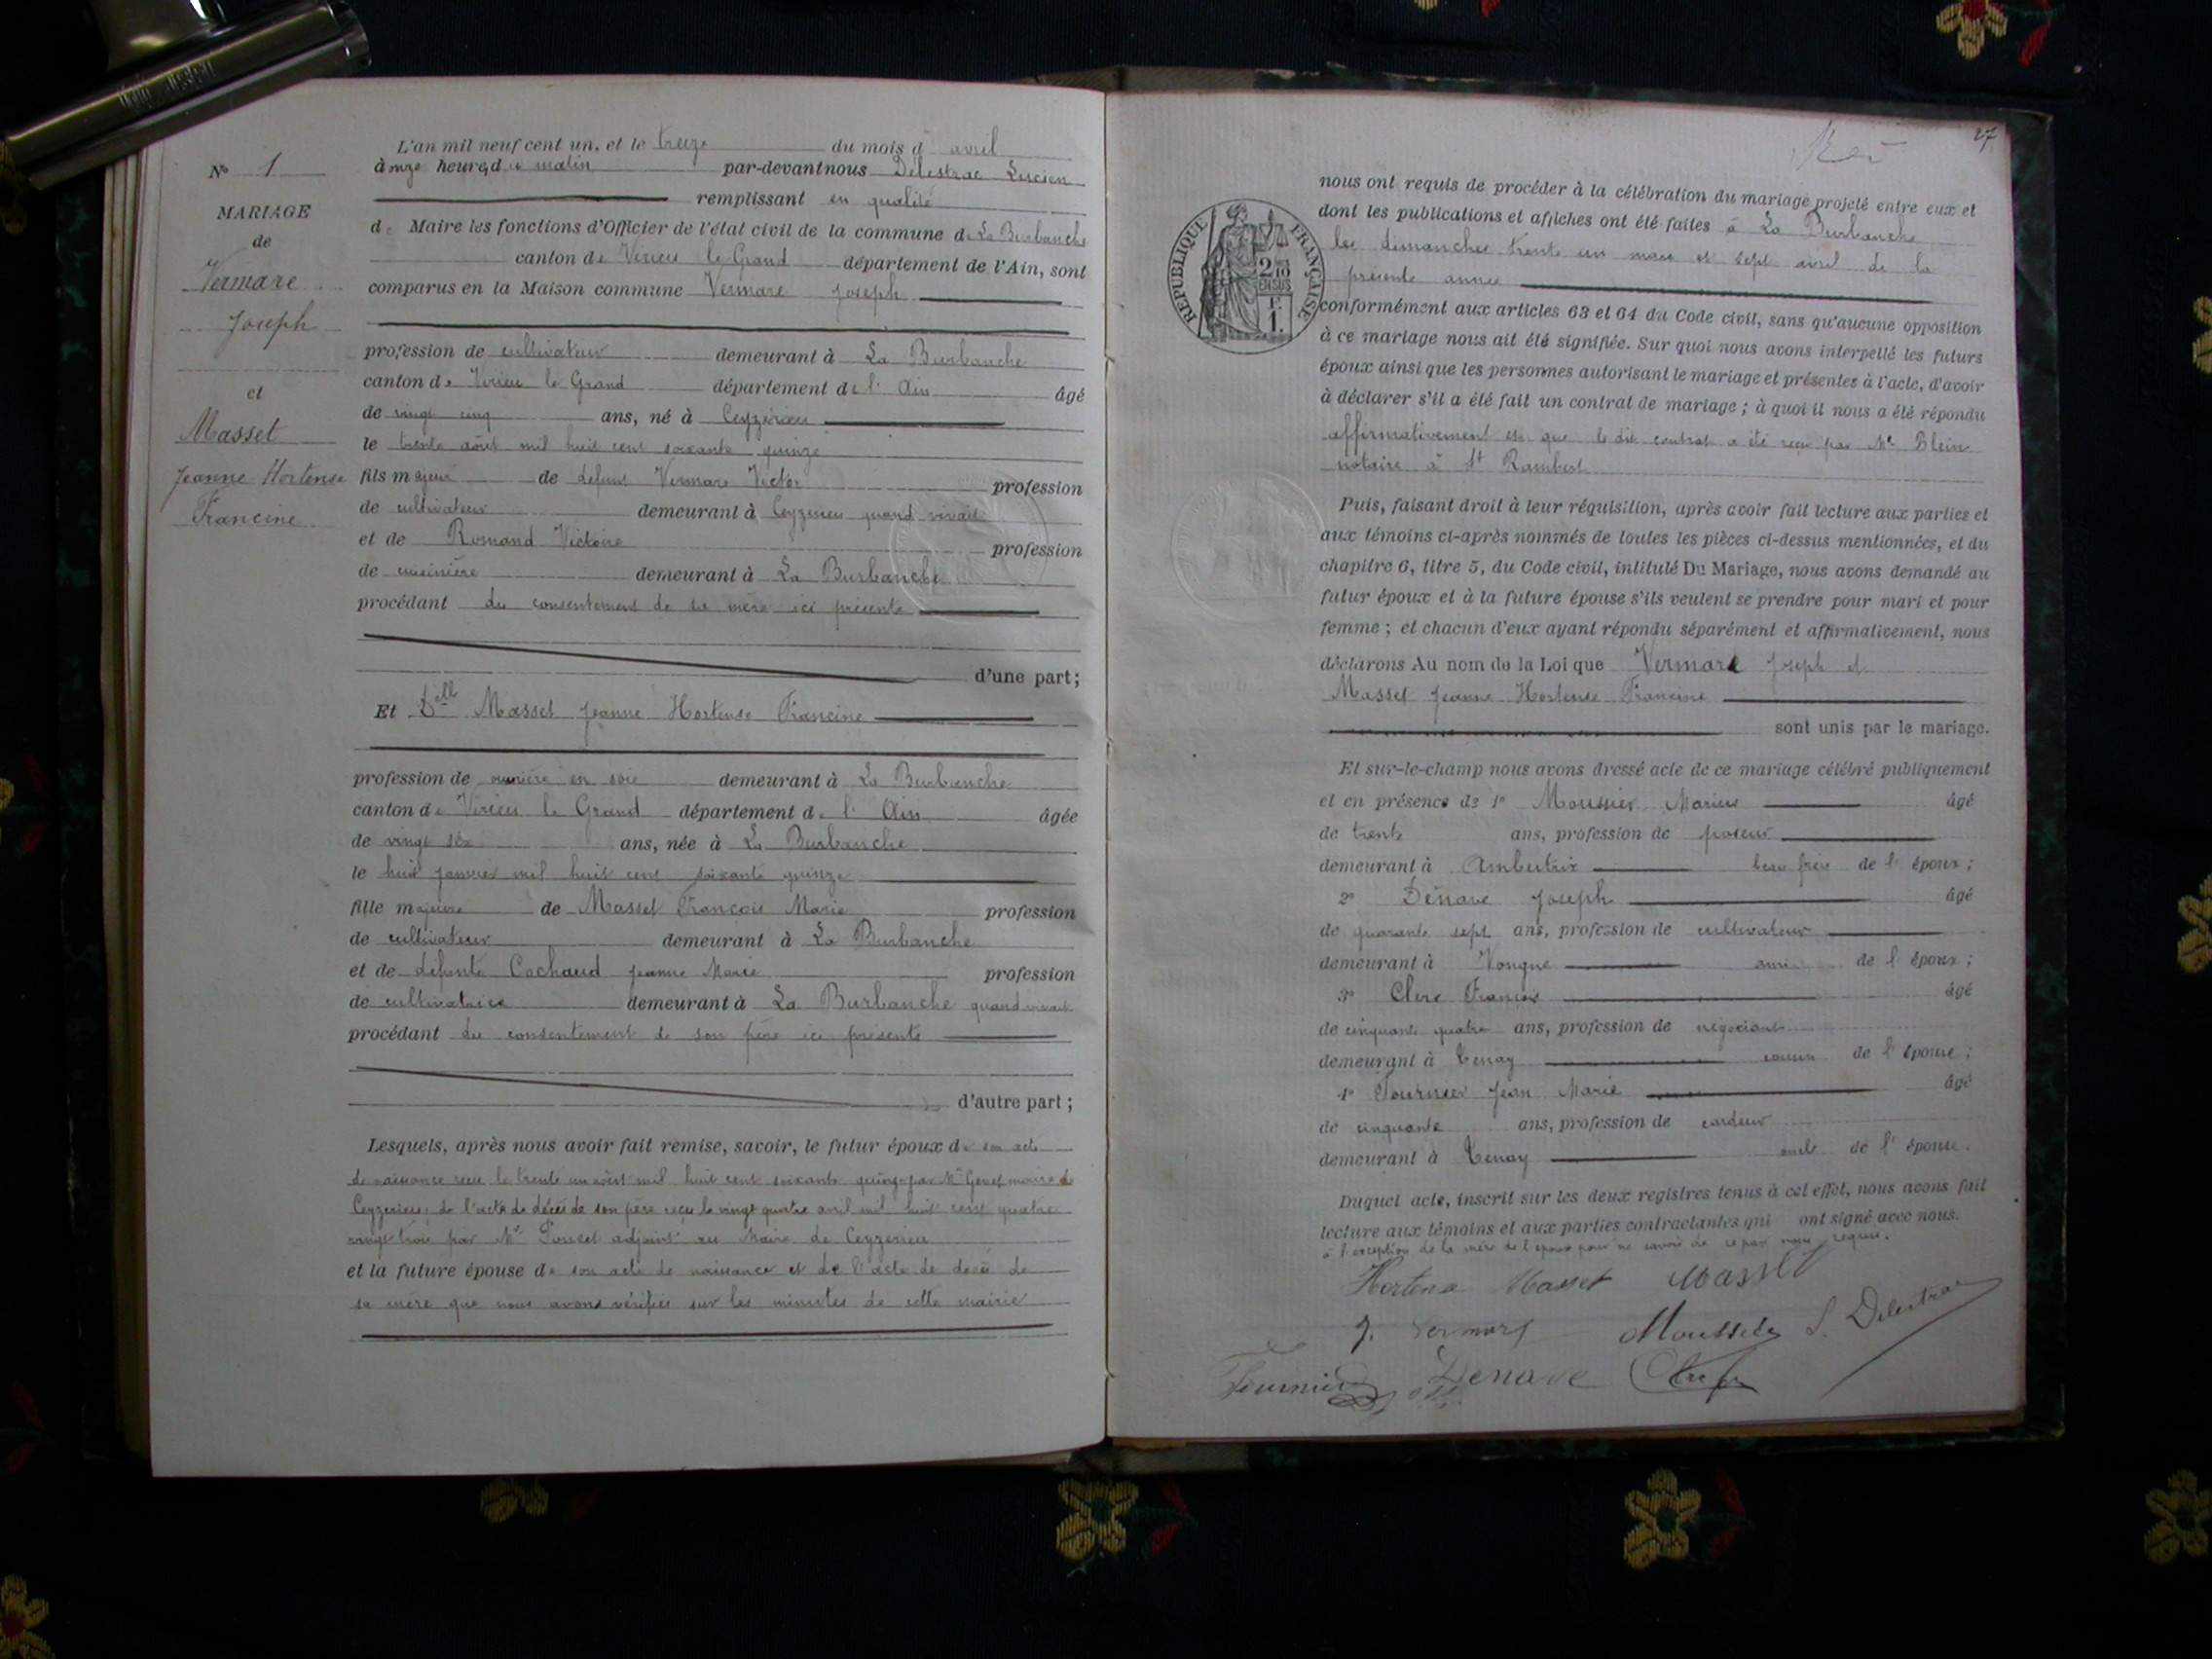 L'an mil neuf cent un, et le treize du mois d'avril
à onze heures du matin par-devant nous Delestrac Lucien
remplissant en qualité
de Maire les fonctions d'Officier de l'état civil de la commune de La Burbanche
canton de Virieu le Grand département de l'Ain, sont
comparus en la Maison commune Vermare Joseph
profession de cultivateur demeurant à La Burbanche
canton de Virieu le Grand département de l'Ain âgé
de vingt cinq ans, né à Ceyzérieu
le trente août mil huit cent soixante quinze
fils majeur de défunt Vermare Victor profession
de cultivateur demeurant à Ceyzerieu quand vivait
et de Romand Victoire profession
de cuisinière demeurant à La Burbanche
procédant du consentement de sa mère ici présente
d'une part;
Et Delle Masset Jeanne Hortense Francine
profession de ouvrière en soie demeurant à La Burbanche
canton de Virieu le Grand département de l'Ain âgée
de vingt six ans, née à La Burbanche
le huit janvier mil huit cent soixante quinze
fille majeure de Masset François Marie profession
de cultivateur demeurant à La Burbanche
et de défunte Cochaud Jeanne Marie profession
de cultivatrice demeurant à La Burbanche quand vivait
procédant du consentement de son père ici présente
d'autre part;
Lesquels, après nous avoir fait remise, savoir, le futur époux de son acte
de naissance reçu le trente un août mil huit cent soixante quinze par Mr Genet maire de
Ceyzerieu; de l'acte de décès de son père reçu le vingt quatre avril mil huit cent quatre
vingt trois par Mr Ponset adjoint au Maire de Ceyzerieu
et la future épouse de son acte de naissance et de l'acte de décès de
sa mère que nous avons vérifiés sur les minutes de cette mairie
No 1
MARIAGE
de
Vermare
Joseph
et
Masset
Jeanne Hortense
Francine
27
RÉPUBLIQUE FRANÇAISE
2/10 EN SUS
F. 1.
nous ont requis de procéder à la célébration du mariage projeté entre eux et
dont les publications et affiches ont été faites à La Burbanche
les dimanches trente un mars et sept avril de la
présente année
conformément aux articles 63 et 64 du Code civil, sans qu'aucune opposition
à ce mariage nous ait été signifiée. Sur quoi nous avons interpellé les futurs
époux ainsi que les personnes autorisant le mariage et présentes à l'acte, d'avoir
à déclarer s'il a été fait un contrat de mariage; à quoi il nous a été répondu
affirmativement et que le dit contrat a été reçu par Me Blein
notaire à St Rambert
Puis, faisant droit à leur réquisition, après avoir fait lecture aux parties et
aux témoins ci-après nommés de toutes les pièces ci-dessus mentionnées, et du
chapitre 6, titre 5, du Code civil, intitulé Du Mariage, nous avons demandé au
futur époux et à la future épouse s'ils veulent se prendre pour mari et pour
femme; et chacun d'eux ayant répondu séparément et affirmativement, nous
déclarons Au nom de la Loi que Vermare Joseph et
Masset Jeanne Hortense Francine
sont unis par le mariage.
Et sur-le-champ nous avons dressé acte de ce mariage célébré publiquement
et en présence de 1° Moussier Marius âgé
de trente ans, profession de poseur
demeurant à Ambutrix beau frère de l'époux;
2° Dénave Joseph âgé
de quarante sept ans, profession de cultivateur
demeurant à Vongne ami de l'époux;
3° Clerc François âgé
de cinquante quatre ans, profession de négociant
demeurant à Tenay cousin de l'épouse;
4° Fournier Jean Marie âgé
de cinquante ans, profession de cardeur
demeurant à Tenay oncle de l'épouse.
Duquel acte, inscrit sur les deux registres tenus à cet effet, nous avons fait
lecture aux témoins et aux parties contractantes qui ont signé avec nous.
à l'exception de la mère de l'époux pour ne savoir de ce par nous requise.
Hortense Masset Masset
J. Vermare Moussier L. Delestrac
Fournier Denave